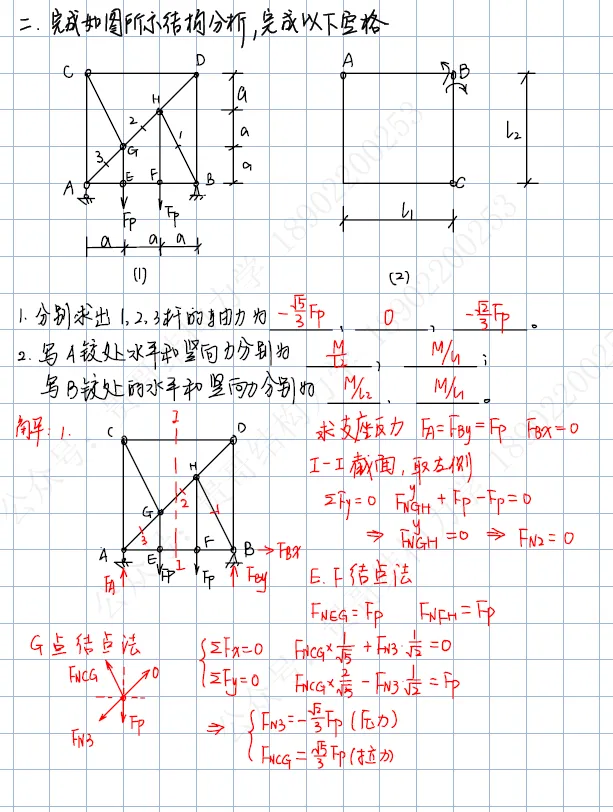 二.完成如图所示结构分析,完成以下空格
C D H 2 1 G 3 A E F B Fp Fp a a a a a a
(1)
A B C l2 l1
(2)
1.分别求出1,2,3杆的轴力为 -√5/3 Fp 、 0 、 -√2/3 Fp 。
2.写A铰处水平和竖向力分别为 M/L2 、 M/l1 ;
写B铰处的水平和竖向力分别为 M/l2 、 M/l1 。
解: 1.
C I D H G 2 1 3 A E I F B Fp Fp FA FBx FBy
求支座反力 FA=FBy=Fp FBx=0
I-I 截面,取左侧
ΣFy=0 FʸNGH + Fp - Fp = 0
⇒ FʸNGH = 0 ⇒ FN2 = 0
E.F结点法
FNEG = Fp FNFH = Fp
G点结点法
FNCG 0 FN3 Fp
ΣFx=0 FNCG×1/√5 + FN3·1/√2 = 0
ΣFy=0 FNCG×2/√5 - FN3·1/√2 = Fp
⇒ FN3 = -√2/3 Fp (压力)
FNCG = √5/3 Fp (拉力)
公众号: 18902200253